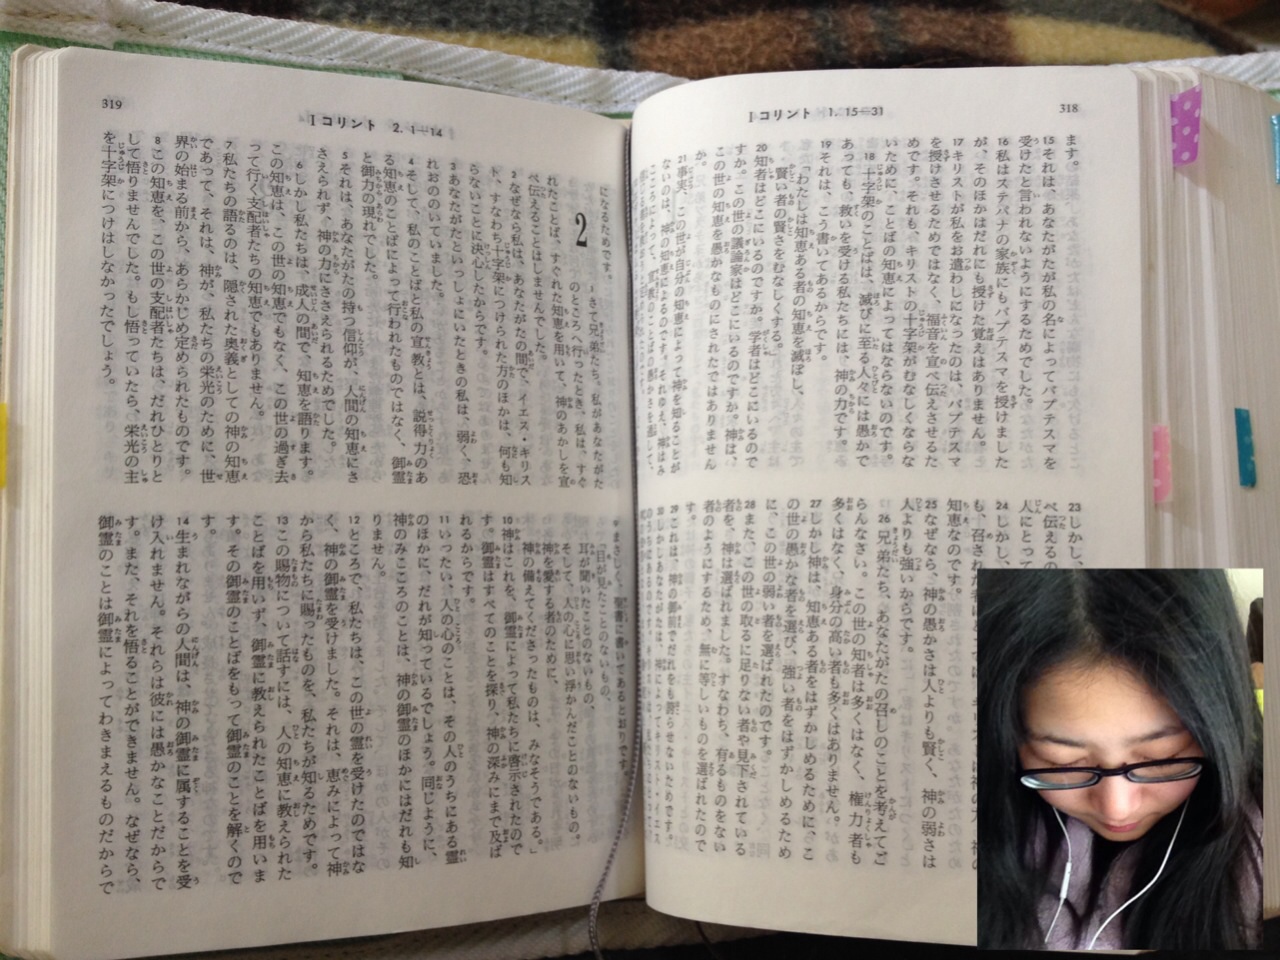 318
Iコリント 1. 15—31
ます。
15それは、あなたがたが私の名によってバプテスマを
受けたと言われないようにするためでした。
16私はステパナの家族にもバプテスマを授けました
が、そのほかはだれにも授けた覚えはありません。
17キリストが私をお遣わしになったのは、バプテスマ
を授けさせるためではなく、福音を宣べ伝えさせるた
めです。それも、キリストの十字架がむなしくならな
いために、ことばの知恵によってはならないのです。
18十字架のことばは、滅びに至る人々には愚かで
あっても、救いを受ける私たちには、神の力です。
19それは、こう書いてあるからです。
「わたしは知恵ある者の知恵を滅ぼし、
賢い者の賢さをむなしくする。」
20知者はどこにいるのですか。学者はどこにいるので
すか。この世の議論家はどこにいるのですか。神は、
この世の知恵を愚かなものにされたではありません
か。
21事実、この世が自分の知恵によって神を知ることが
ないのは、神の知恵によるのです。それゆえ、神はみ
こころによって、宣教のことばの愚かさを通して、
23しかし、
べ伝えるの
人にとって
24しかし、
も、召され
知恵なのです。
25なぜなら、神の愚かさは人よりも賢く、神の弱さは
人よりも強いからです。
26兄弟たち、あなたがたの召しのことを考えてご
らんなさい。この世の知者は多くはなく、権力者も
多くはなく、身分の高い者も多くはありません。
27しかし神は、知恵ある者をはずかしめるために、こ
の世の愚かな者を選び、強い者をはずかしめるため
に、この世の弱い者を選ばれたのです。
28また、この世の取るに足りない者や見下されている
者を、神は選ばれました。すなわち、有るものをない
者のようにするため、無に等しいものを選ばれたので
す。
29これは、神の御前でだれをも誇らせないためです。
319
Iコリント 2. 1—14
になるためです。
2
1さて兄弟たち。私があなたがた
のところへ行ったとき、私は、すぐ
れたことば、すぐれた知恵を用いて、神のあかしを宣
べ伝えることはしませんでした。
2なぜなら私は、あなたがたの間で、イエス・キリス
ト、すなわち十字架につけられた方のほかは、何も知
らないことに決心したからです。
3あなたがたといっしょにいたときの私は、弱く、恐
れおののいていました。
4そして、私のことばと私の宣教とは、説得力のあ
る知恵のことばによって行われたものではなく、御霊
と御力の現れでした。
5それは、あなたがたの持つ信仰が、人間の知恵にさ
さえられず、神の力にささえられるためでした。
6しかし私たちは、成人の間で、知恵を語ります。
この知恵は、この世の知恵でもなく、この世の過ぎ去
って行く支配者たちの知恵でもありません。
7私たちの語るのは、隠された奥義としての神の知恵
であって、それは、神が、私たちの栄光のために、世
界の始まる前から、あらかじめ定められたものです。
8この知恵を、この世の支配者たちは、だれひとりと
して悟りませんでした。もし悟っていたら、栄光の主
を十字架につけはしなかったでしょう。
9まさしく、聖書に書いてあるとおりです。
「目が見たことのないもの、
耳が聞いたことのないもの、
そして、人の心に思い浮かんだことのないもの。
神を愛する者のために、
神の備えてくださったものは、みなそうである。」
10神はこれを、御霊によって私たちに啓示されたので
す。御霊はすべてのことを探り、神の深みにまで及ば
れるからです。
11いったい、人の心のことは、その人のうちにある霊
のほかに、だれが知っているでしょう。同じように、
神のみこころのことは、神の御霊のほかにはだれも知
りません。
12ところで、私たちは、この世の霊を受けたのではな
く、神の御霊を受けました。それは、恵みによって神
から私たちに賜ったものを、私たちが知るためです。
13この賜物について話すには、人の知恵に教えられた
ことばを用いず、御霊に教えられたことばを用いま
す。その御霊のことばをもって御霊のことを解くので
す。
14生まれながらの人間は、神の御霊に属することを受
け入れません。それらは彼には愚かなことだからで
す。また、それを悟ることができません。なぜなら、
御霊のことは御霊によってわきまえるものだからで